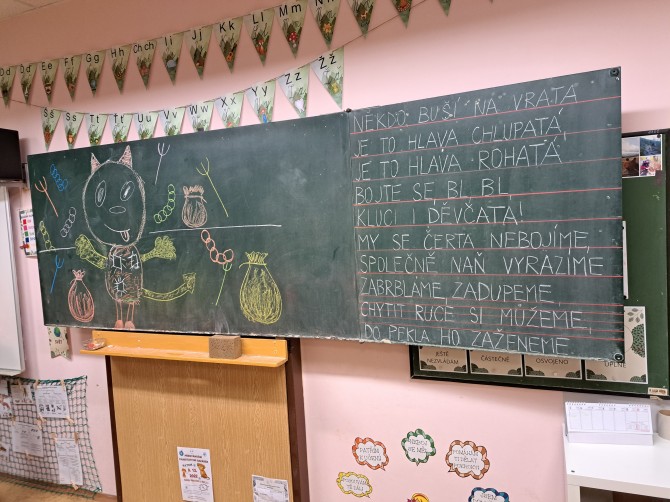 Dd Ďď Ee Ff Gg Hh Chch Ii Jj Kk Ll Mm Nn
Šš Ss Tt Ťť Uu Vv Xx Yy Zz Žž
NĚKDO BUŠÍ NA VRATA
JE TO HLAVA CHLUPATÁ,
JE TO HLAVA ROHATÁ
BOJTE SE, BL, BL,
KLUCI I DĚVČATA!
MY SE ČERTA NEBOJÍME,
SPOLEČNĚ NAŇ VYRAZÍME
ZABRBLÁME, ZADUPEME,
CHYTIT RUCE SI MŮŽEME,
DO PEKLA HO ZAŽENEME.
JEŠTĚ NEZVLÁDÁM
ČÁSTEČNĚ
OSVOJENO
ÚPLNĚ